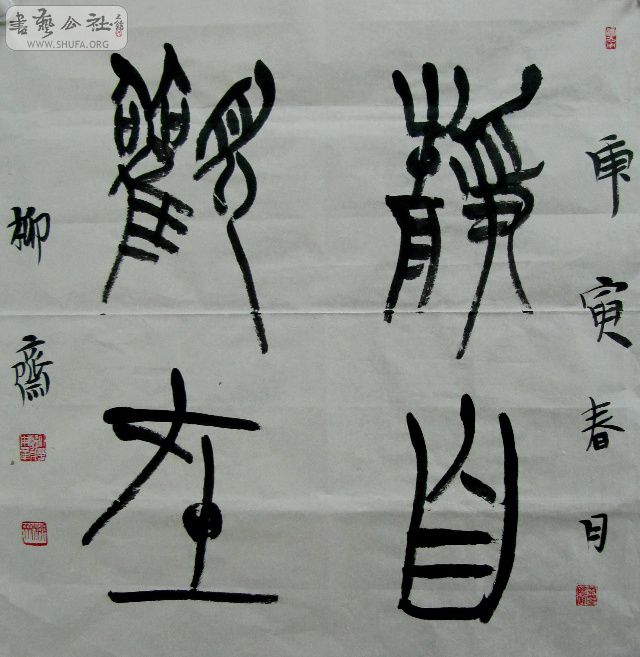 書藝公社
WWW.SHUFA.ORG
靜觀
自在
庚寅春月
柳齋